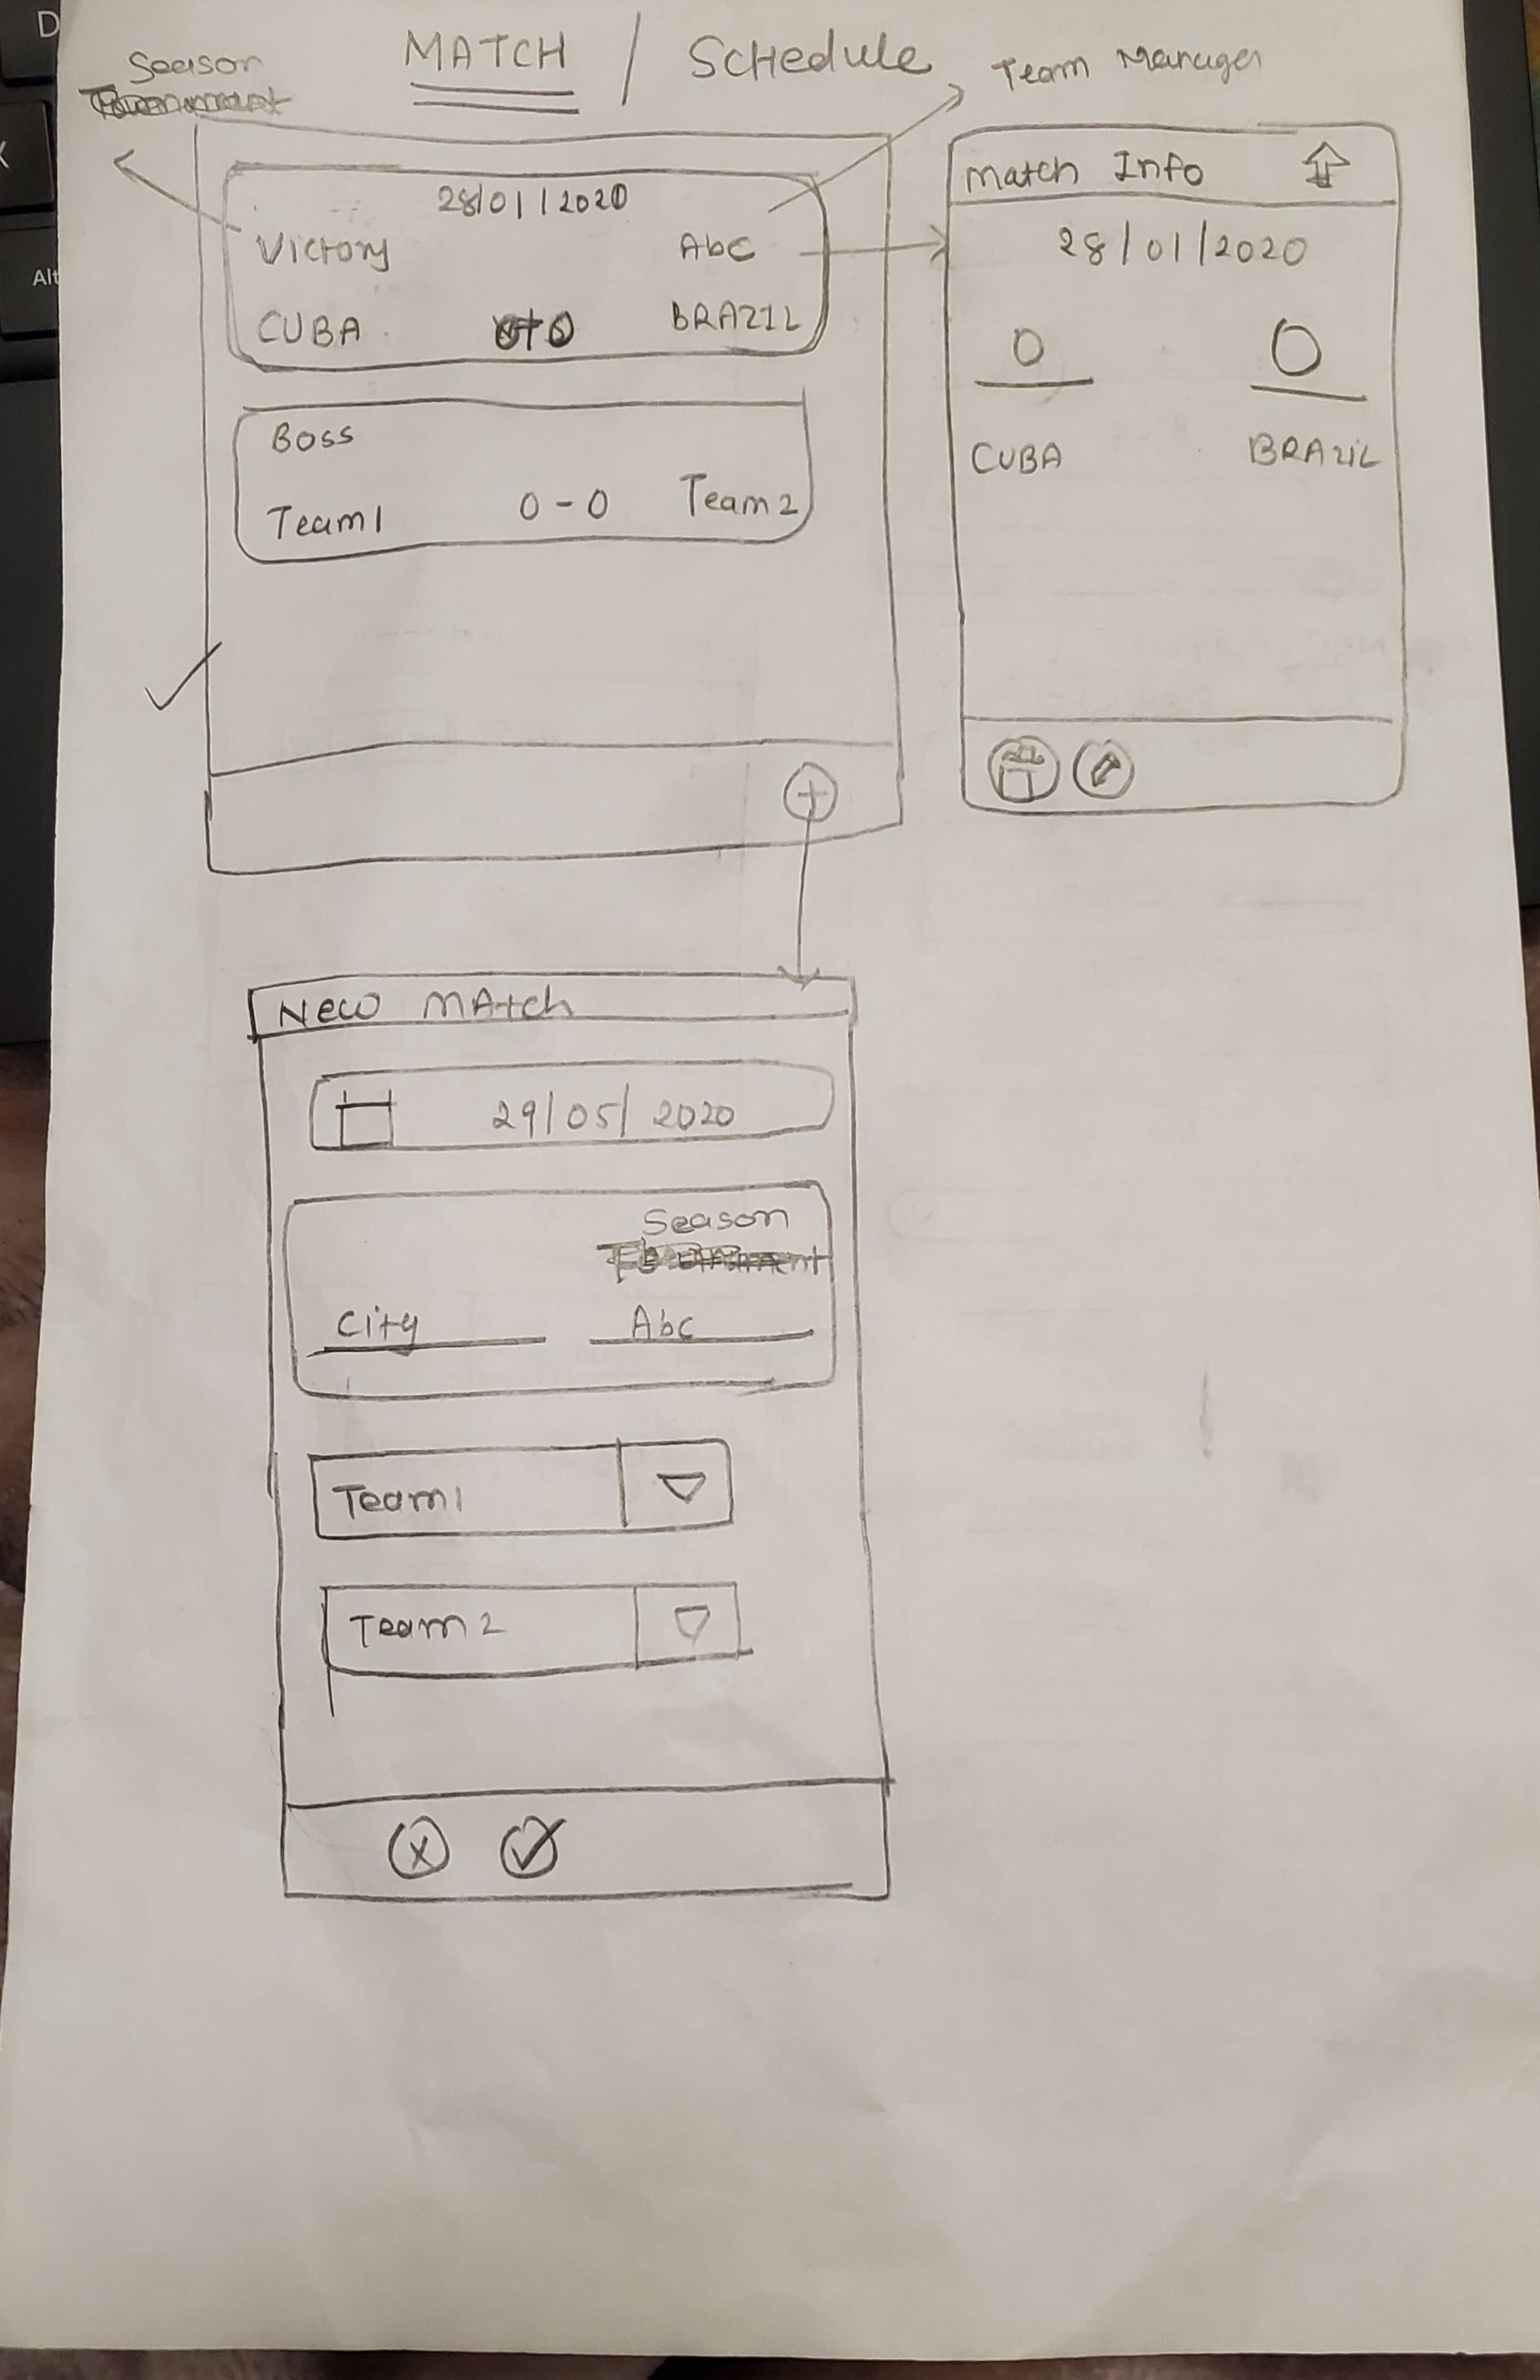 D
X
Alt
MATCH / Schedule
Season
Tournament
Team Manager
28/01/2020
Victory Abc
CUBA BRAZIL
Boss
Team1 0-0 Team2
+
Match Info
28/01/2020
0 0
CUBA BRAZIL
New MAtch
29/05/2020
Season
Tournament
City Abc
Team1
Team2
x